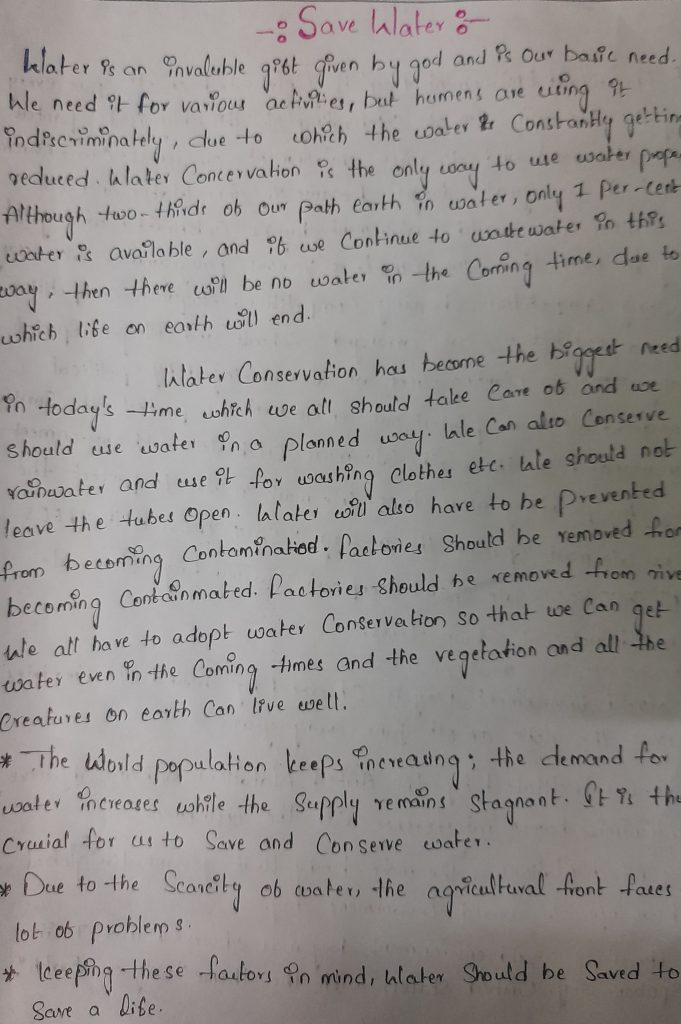 -: Save Water :-
Water is an invaluble gift given by god and is our basic need.
We need it for various activities, but humens are using it
indiscriminately, due to which the water is constantly gettin
reduced. Water Concervation is the only way to use water prope
Although two-thirds of our path earth in water, only 1 per-cent
water is available, and if we continue to waste water in this
way, then there will be no water in the coming time, due to
which life on earth will end.
Water Conservation has become the biggest need
in today's time which we all should take care of and we
should use water in a planned way. We can also conserve
rainwater and use it for washing clothes etc. We should not
leave the tubes open. Water will also have to be prevented
from becoming Contominatiod. factories should be removed fro
becoming Containmated. factories should be removed from rive
We all have to adopt water conservation so that we can get
water even in the coming times and the vegetation and all the
creatures on earth can live well.
* The World population keeps increasing; the demand for
water increases while the supply remains stagnant. It is the
crucial for us to save and conserve water.
* Due to the Scarcity of water, the agricultural front faces
lot of problems.
* keeping these factors in mind, Water should be saved to
save a life.